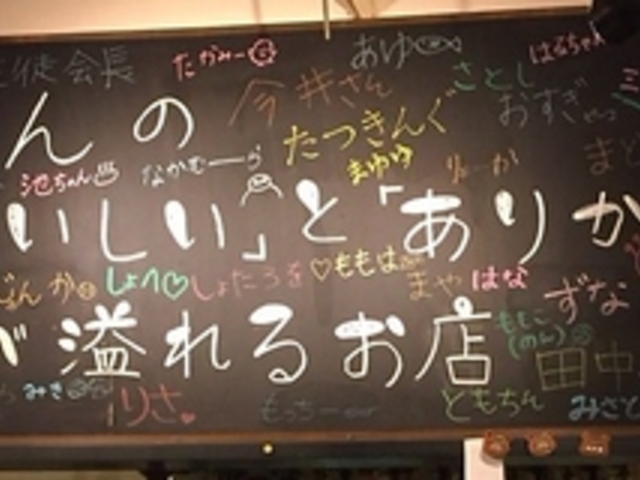 生徒会長 たかみー あゆ はるちゃん
今井さん さとし おすぎやっ
んの たつきんぐ
池ちゃん なかむーら まゆゆ りょーか
いしい」と「ありが
か しょへ♡ しょたろを ♡ももは まや はな ずな
が溢れるお店 ももこ (のん) 田中
みき りさ もっちー ともちん みさと